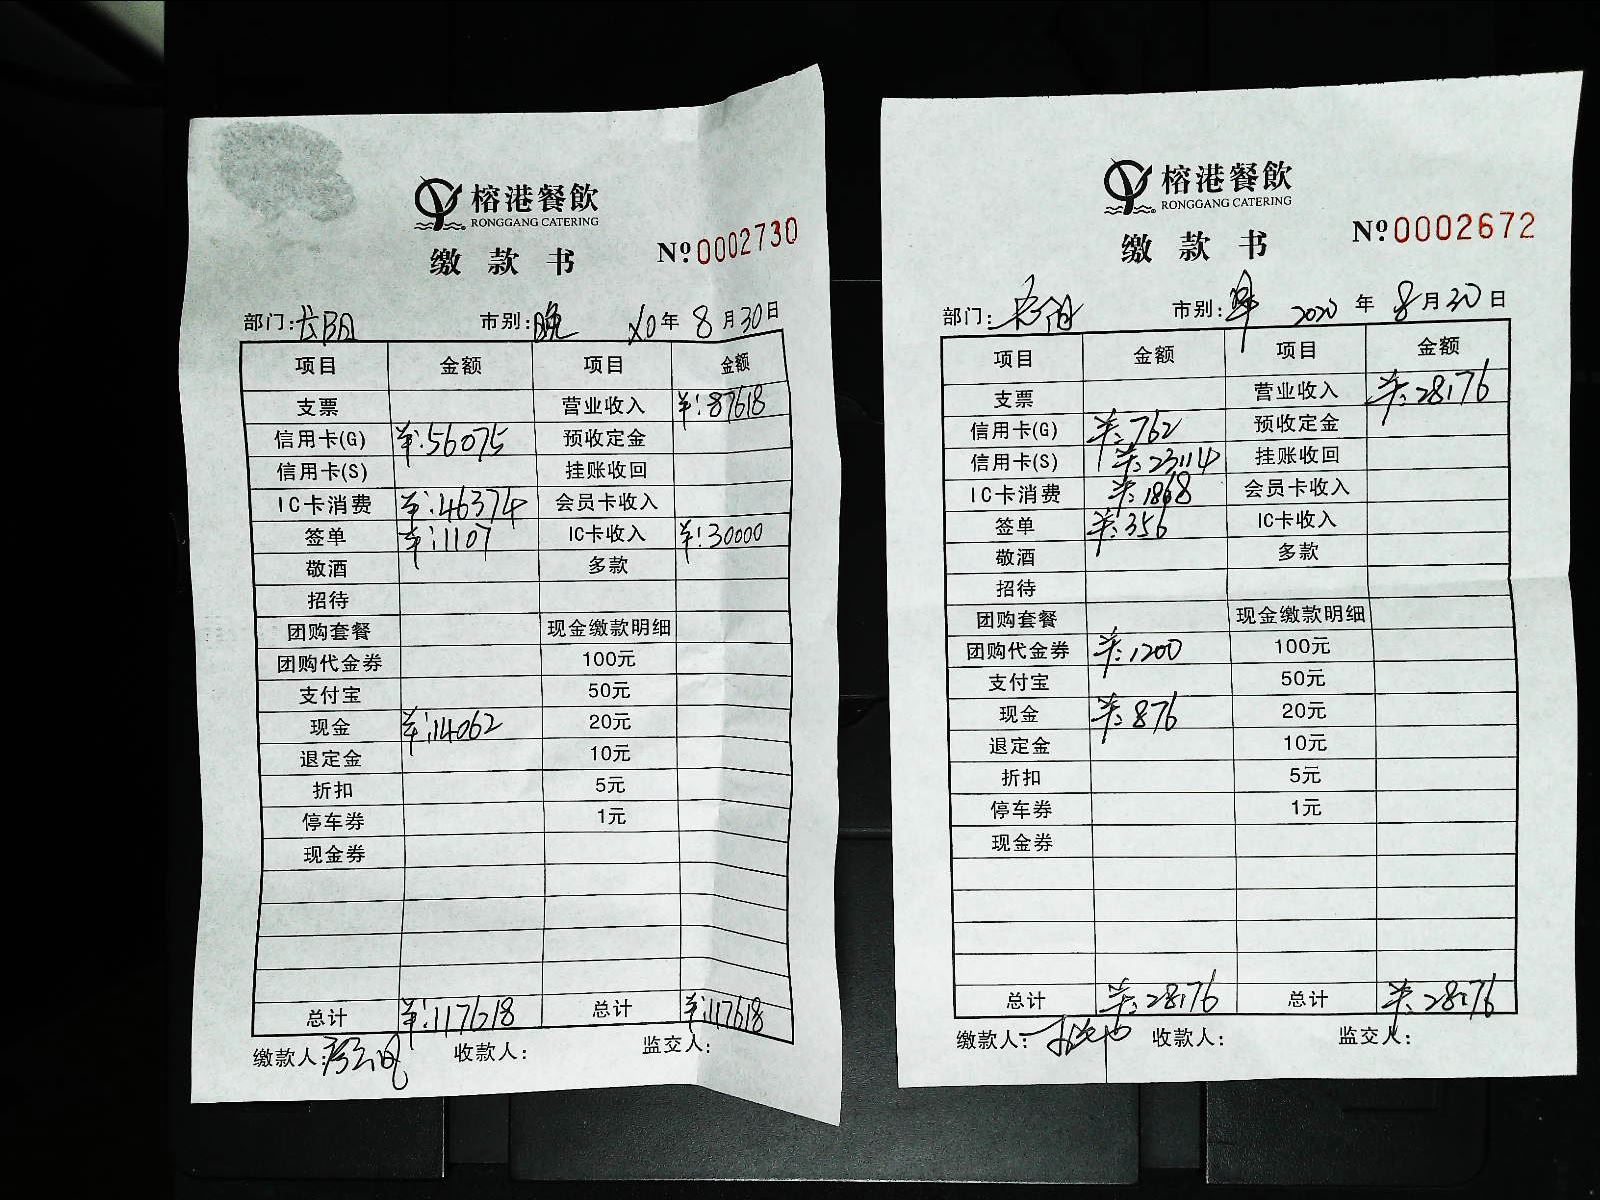 榕港餐飲
RONGGANG CATERING
缴款书 №0002730
部门: 市别:晚 20年8月30日
项目 金额 项目 金额
支票 营业收入 ¥:87618
信用卡(G) ¥:56075 预收定金
信用卡(S) 挂账收回
IC卡消费 ¥:46374 会员卡收入
签单 ¥:1107 IC卡收入 ¥:30000
敬酒 多款
招待
团购套餐 现金缴款明细
团购代金券 100元
支付宝 50元
现金 ¥:14062 20元
退定金 10元
折扣 5元
停车券 1元
现金券
总计 ¥:117618 总计 ¥:117618
缴款人: 收款人: 监交人:
榕港餐飲
RONGGANG CATERING
缴款书 №0002672
部门: 市别:早 2020年8月30日
项目 金额 项目 金额
支票 营业收入 ¥:28176
信用卡(G) ¥:762 预收定金
信用卡(S) ¥:23114 挂账收回
IC卡消费 ¥:1868 会员卡收入
签单 ¥:356 IC卡收入
敬酒 多款
招待
团购套餐 现金缴款明细
团购代金券 ¥:1200 100元
支付宝 50元
现金 ¥:876 20元
退定金 10元
折扣 5元
停车券 1元
现金券
总计 ¥:28176 总计 ¥:28176
缴款人: 收款人: 监交人: